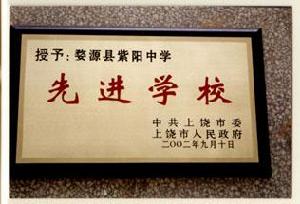 授予：婺源县紫阳中学
先进学校
中共上饶市委
上饶市人民政府
二〇〇二年九月十日